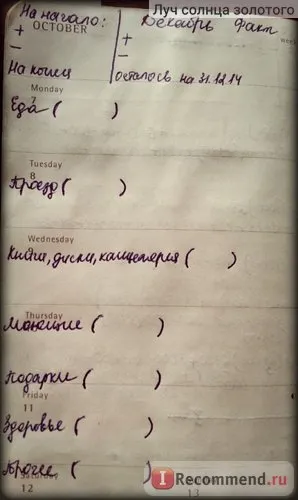 Луч солнца золотого
На начало: Декабрь факт
+ OCTOBER +
− −
На конец осталось на 31.12.14
Monday
7
Еда ( )
Tuesday
8
Проезд ( )
Wednesday
Книги, диски, канцелярия ( )
Thursday
Моющие ( )
Подарки ( )
Friday
11
Здоровье ( )
Прочее ( )
Saturday
12
13
I Recommend.ru